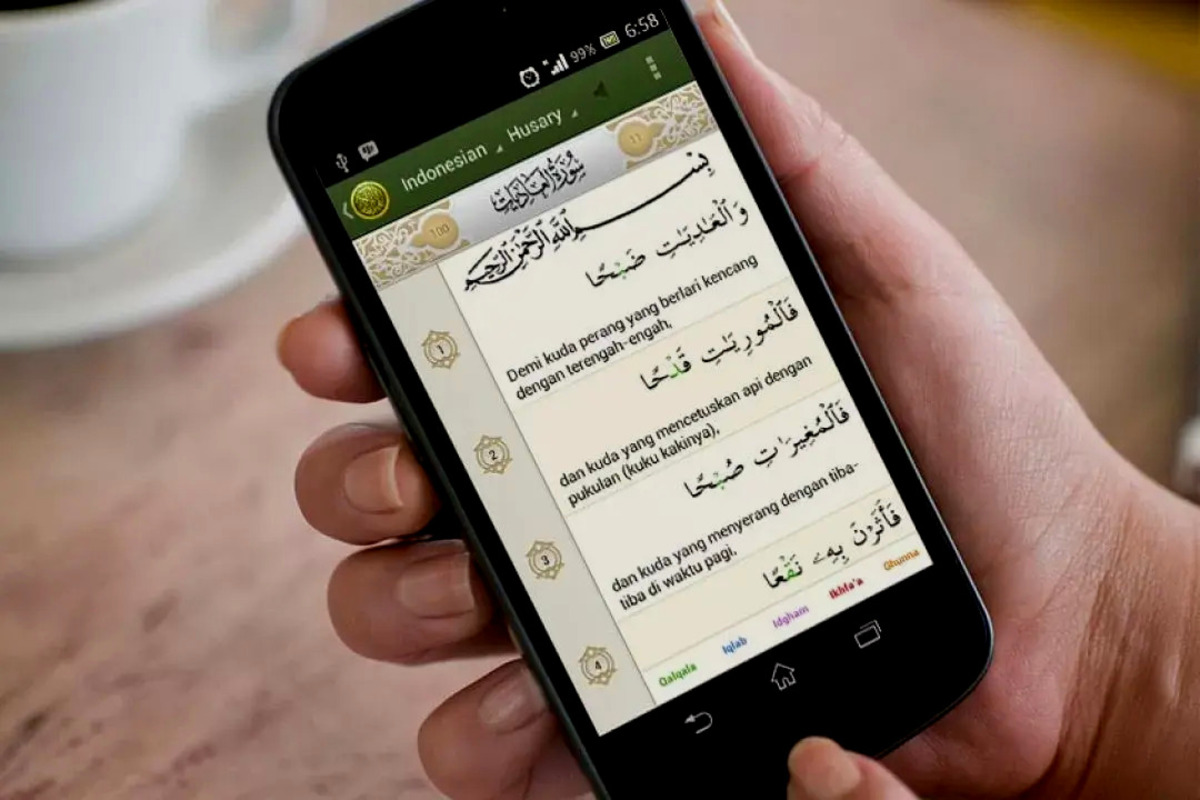 99% 6:58
Indonesian Husary
100 سُورَةُ العَادِيَات 11
بِسْمِ اللَّهِ الرَّحْمَٰنِ الرَّحِيمِ
وَٱلْعَٰدِيَٰتِ ضَبْحًا
1
Demi kuda perang yang berlari kencang
dengan terengah-engah,
فَٱلْمُورِيَٰتِ قَدْحًا
2
dan kuda yang mencetuskan api dengan
pukulan (kuku kakinya),
فَٱلْمُغِيرَٰتِ صُبْحًا
3
dan kuda yang menyerang dengan tiba-
tiba di waktu pagi,
فَأَثَرْنَ بِهِۦ نَقْعًا
4
Qalqala Iqlab Idgham Ikhfa'a Ghunna